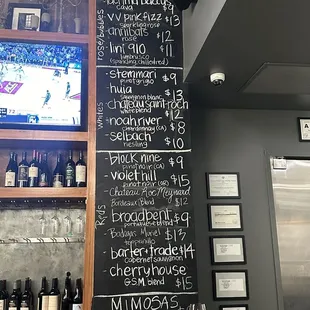 cava $9
vv pink fizz $13
sparkling rose
annibals $12
rosé
lini 910 $11
lambrusco
(sparkling, chilled red)
rosé/bubbles
stemmari $9
pinot grigio
huia $13
sauvignon blanc
chateau saint roch $12
white blend
noah river $8
chardonnay (CA)
selbach $10
riesling
whites
block nine $9
pinot noir (CA)
violet hill $15
pinot noir
Bordeaux Blend $12
broadbent $9
Portuguese blend
Bodegas Muriel $13
tempranillo
barter + trade $13
cabernet sauvignon
cherry house
G.S.M. blend $15
Reds
MIMOSAS
A